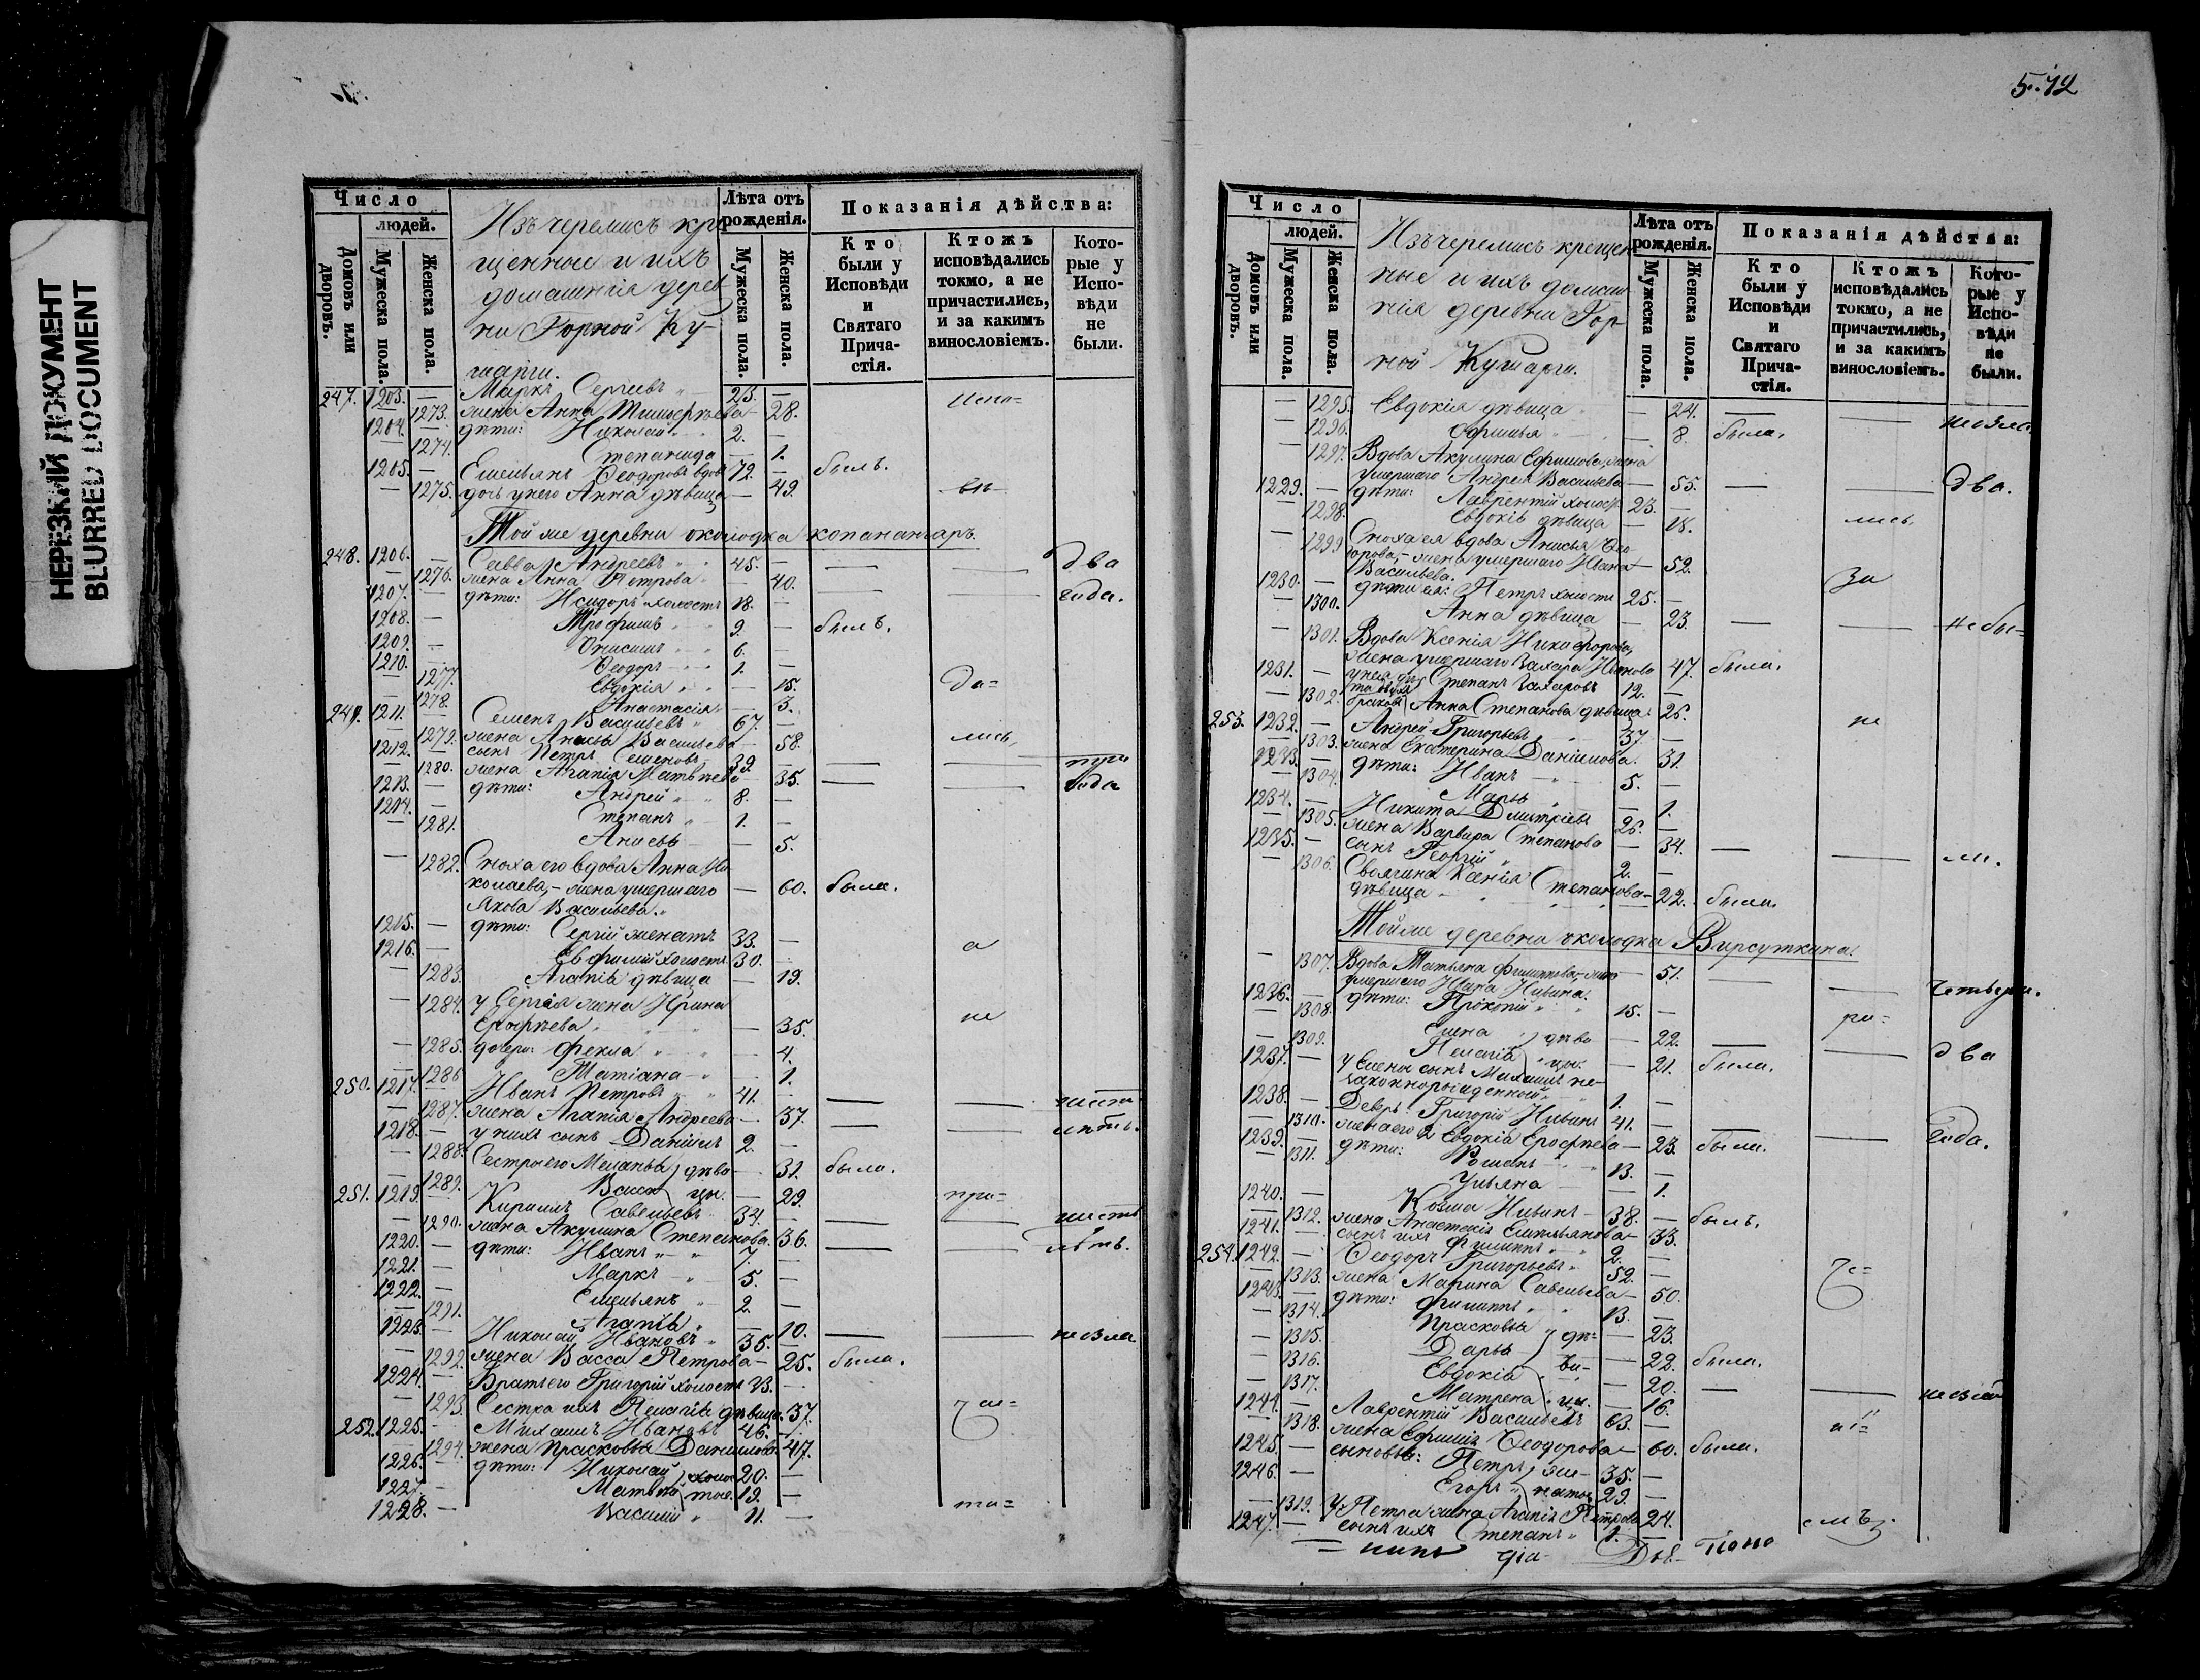 НЕРЕЗКИЙ ДОКУМЕНТ
BLURRED DOCUMENT
Число
людей.
Домовъ или дворовъ.
Мужеска пола.
Женска пола.
Изъ черемисъ кре
щенные и ихъ
домашнія дерев
ни Горной Ку-
шарги.
Лѣта отъ рожденія.
Мужеска пола.
Женска пола.
Показанія дѣйства:
Кто были у Исповѣди и Святаго Прича-стія.
Ктожъ исповѣдались токмо, а не причастились, и за какимъ винословіемъ.
Кото-рые у Испо-вѣди не были.
247. 1203. — Маркъ Сергѣевъ 23. — Испо=
— 1273. жена Анна Тимоѳеева — 28.
1204. — дѣти: Николай 2. —
— 1274. Степанида — 1.
1205. — Емельянъ Ѳеодоровъ вдов 72. — былъ.
— 1275. дочь у него Анна дѣвица — 49.
Той же деревни околодка
248. 1206. — Савва Андреевъ 45. — — — два
— 1276. жена Анна Петрова — 40.
1207. — дѣти: Исидоръ холостъ 18. — — — года.
1208. — Трофимъ 9. — былъ.
1209. — Онисимъ 6. —
1210. — Ѳеодоръ 1. —
— 1277. Евдокія — 15. да=
— 1278. Анастасія — 3.
249. 1211. — Семенъ Васильевъ 67. —
— 1279. жена Анисья Васильева — 58. лись,
1212. — сынъ Петръ Семеновъ 39. — — — три
— 1280. жена Агапія Матвѣева — 35. — — года
1213. — дѣти: Андрей 8. —
1214. — Степанъ 1. —
— 1281. Анисья — 5.
— 1282. Сноха его вдова Анна Ни
колаева, – жена умершаго — 60. была.
Якова Васильева.
1215. — дѣти: Сергій женатъ 33. —
1216. — Евфимій холостъ 30. — а
— 1283. Агапія дѣвица — 19.
— 1284. у Сергія жена Ирина
Ерофѣева — 35. не
— 1285. дочери: Фекла — 4.
— 1286 Татіана — 1.
250. 1217. — Иванъ Петровъ 41. — — — шесть
— 1287. жена Агапія Андреева — 37. — — лѣтъ.
1218. — у нихъ сынъ Даніилъ 2. —
— 1288. Сестры его Меланья дѣви — 31. была.
— 1289. Васса цы. — 29.
251. 1219. — Кирилъ Савельевъ 34. — при=
— 1290. жена Акулина Степанова. 36. — — шесть
1220. — дѣти: Иванъ 7. — — — лѣтъ.
1221. — Маркъ 5. —
1222. — Емельянъ 2. —
— 1291. Агапія — 10.
1223. — Николай Ивановъ 35. — — —
— 1292. жена Васса Петрова — 25. была.
1224. — Братъ его Григорій холостъ 23. —
— 1293. Сестра ихъ Пелагія дѣвица. 37. час=
252. 1225. — Михаилъ Ивановъ 46. —
— 1294. жена Прасковья Данилова. 47.
1226. — дѣти: Николай холос 20. —
1227. — Матвѣй тые. 19. —
1228. — Василій 11. — ти=
5.72
Число
людей.
Домовъ или дворовъ.
Мужеска пола.
Женска пола.
Изъ черемисъ крещен
ные и ихъ домаш
нія деревни Гор
ной Кушарги.
Лѣта отъ рожденія.
Мужеска пола.
Женска пола.
Показанія дѣйства:
Кто были у Исповѣди и Святаго Прича-стія.
Ктожъ исповѣдались токмо, а не причастились, и за какимъ винословіемъ.
Кото-рые у Испо-вѣди не были.
— 1295. Евдокія дѣвица — 24. — —
— 1296. Офимья — 8. была.
— 1297. Вдова Акулина Ефимова, жена
умершаго Андрея Васильева — 55. — — два.
1229. — дѣти: Лаврентій холост. 23. —
— 1298. Евдокія дѣвица — 18. лись,
— 1299 Сноха ея вдова Анисья Ѳео
дорова, – жена умершаго Ивана — 52.
Васильева. за
1230. — дѣти ея: Петръ холостъ 25. —
— 1300. Анна дѣвица — 23. — — не бы=
— 1301. Вдова Ксенія Никифорова,
жена умершаго Захара Иванова 47. была.
1231. — Степанъ Захаровъ 12. —
— 1302. Анна Степанова дѣвица. 26.
253. 1232. — Андрей Григорьевъ 37. — не
— 1303. жена Екатерина Даніилова. 31.
1233. — дѣти: Иванъ 5. —
— 1304. Марья — 1.
1234. — Никита Дмитріевъ 26. —
— 1305. жена Варвара Степанова — 34. — — ли.
1235. — сынъ Георгій 2. —
— 1306. Своячина Ксенія Степанова — 22. была.
дѣвица
Той же деревни околодка Вирсуткина.
— 1307. Вдова Татьяна Филиппова, жена — 51. — — четыре.
умершаго
1236. — дѣти: Прокопій 15. —
— 1308. Елена дѣви — 22. ра=
— 1309. Пелагія цы. — 21. была. — два
1237. — у Елены сынъ Михаилъ не-
законнорожденной 1. —
1238. — Деверь Григорій 41. — — — года.
— 1310. жена его 2 Евдокія Ерофѣева — 23. была.
1239. — дѣти: Романъ 13. —
— 1311. Ульяна — 1.
1240. — Козма 38. — былъ.
— 1312. жена Анастасія Емельянова — 33.
1241. — сынъ ихъ Филиппъ 2. —
254. 1242. — Ѳеодоръ Григорьевъ 52. — че=
— 1313. жена Марина Савельева — 50.
1243. — дѣти: Филиппъ 13. —
— 1314. Прасковья дѣ= — 23.
— 1315. Дарья ви- — 22. была.
— 1316. Евдокія — 20. — —
— 1317. Матрена цы. — 16.
1244. — Лаврентій Васильевъ 63. —
— 1318. жена Ефимія Ѳеодорова — 60. была.
1245. — сыновья: Петръ же- 35. —
1246. — Егоръ наты 29. —
— 1319. У Петра жена Агапія Петрова 24.
1247. — сынъ ихъ Степанъ 1. — смъ.